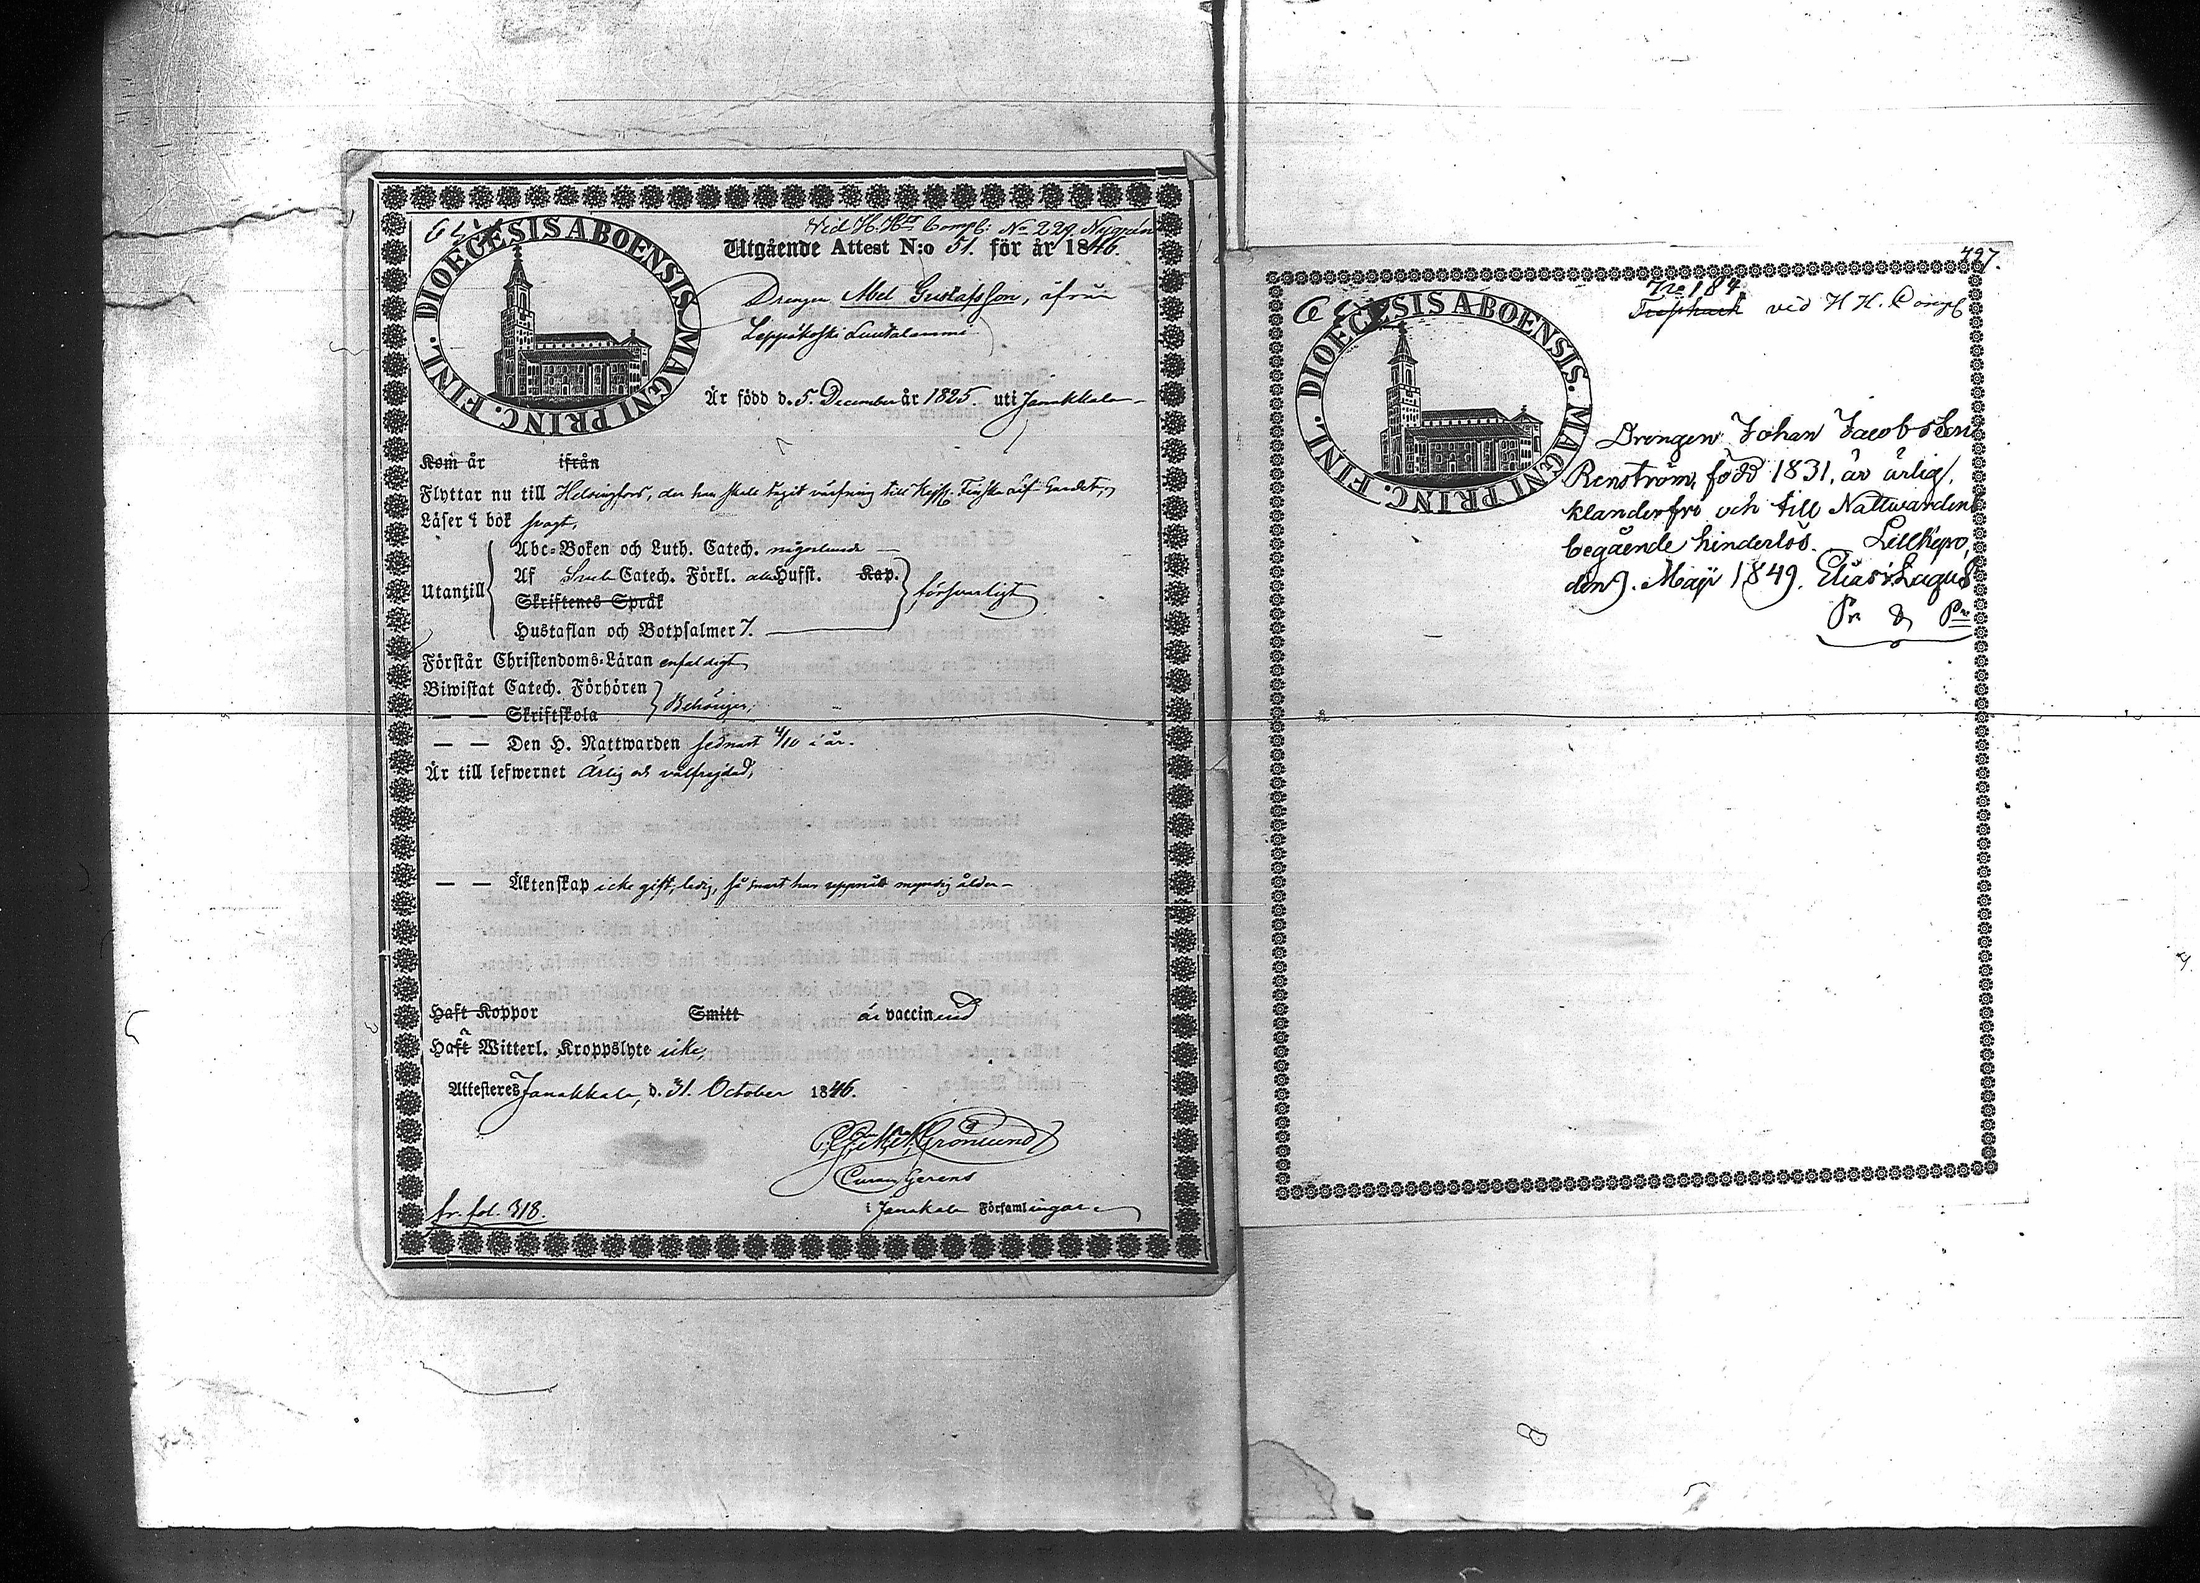 Vid H. H. Comp: No 229. Nygrén
DIOECESIS ABOENSIS. MAGNI PRINC. FINL.
Utgående Attest N:o 51. för år 1846.
Drengen Abel Gustafsson, ifrån
Leppäkoski Luutalammi
Är född d. 5. December år 1825. uti Janakkala
Kom år ifrån
Flyttar nu till Helsingfors, der han skall tagit värfning till Finska Gardet,
Läser i bok svagt,
Abc-Boken och Luth. Catech. någorlunda —
Utantill Af Catech. Förkl. alla Hufst. Kap. försvarligt
Skriftenes Språk
Hustaflan och Botpsalmer 7.
Förstår Christendoms-Läran enfaldigt,
Biwistat Catech. Förhören Behörigen,
— — Skriftskola
— — Den H. Nattwarden sednast 4/10 i år.
Är till lefwernet ärlig och välfrejdad,
— — Äktenskap icke gift, ledig, så snart han uppnått myndig ålder —
Haft Koppor Smitt är vaccinerad
Haft Witterl. Kroppslyte icke,
Attesteras Janakkala, d. 31. October 1846.
Grönlund
Curam Gerens
i Janakkala Församlingar
fr. fol. 318.
497.
No 184.
vid H H. Comp
DIOECESIS ABOENSIS. MAGNI PRINC. FINL.
Drengen Johan Jacobsson
Renström, född 1831, är ärlig,
klanderfri och till Nattwardens
begående hinderlös. Lillkyro,
den 9. Maji 1849. Elias Lagus
Pr. & Pn